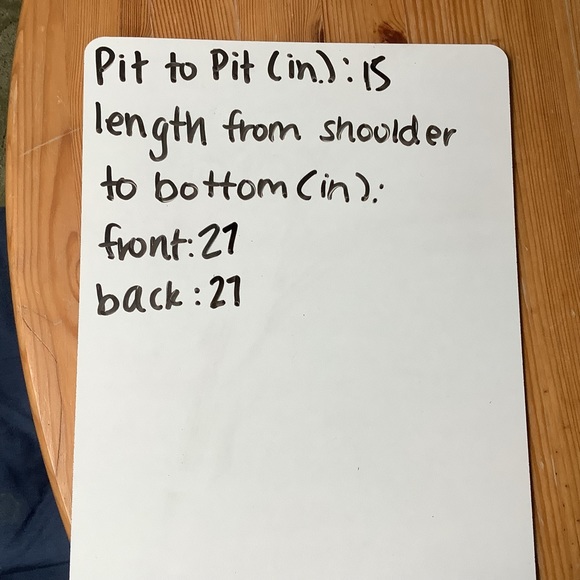 Pit to Pit (in.): 15
length from shoulder
to bottom (in):
front: 27
back: 27